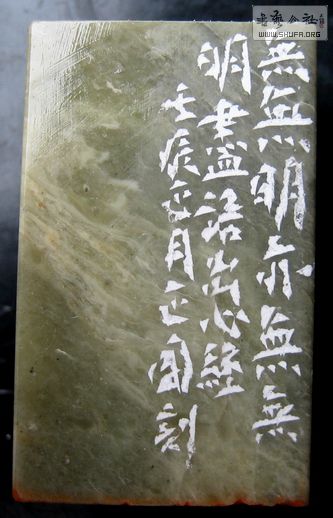 無無明亦無無
明盡語出心經
壬辰正月刻
書藝公社
WWW.SHUFA.ORG